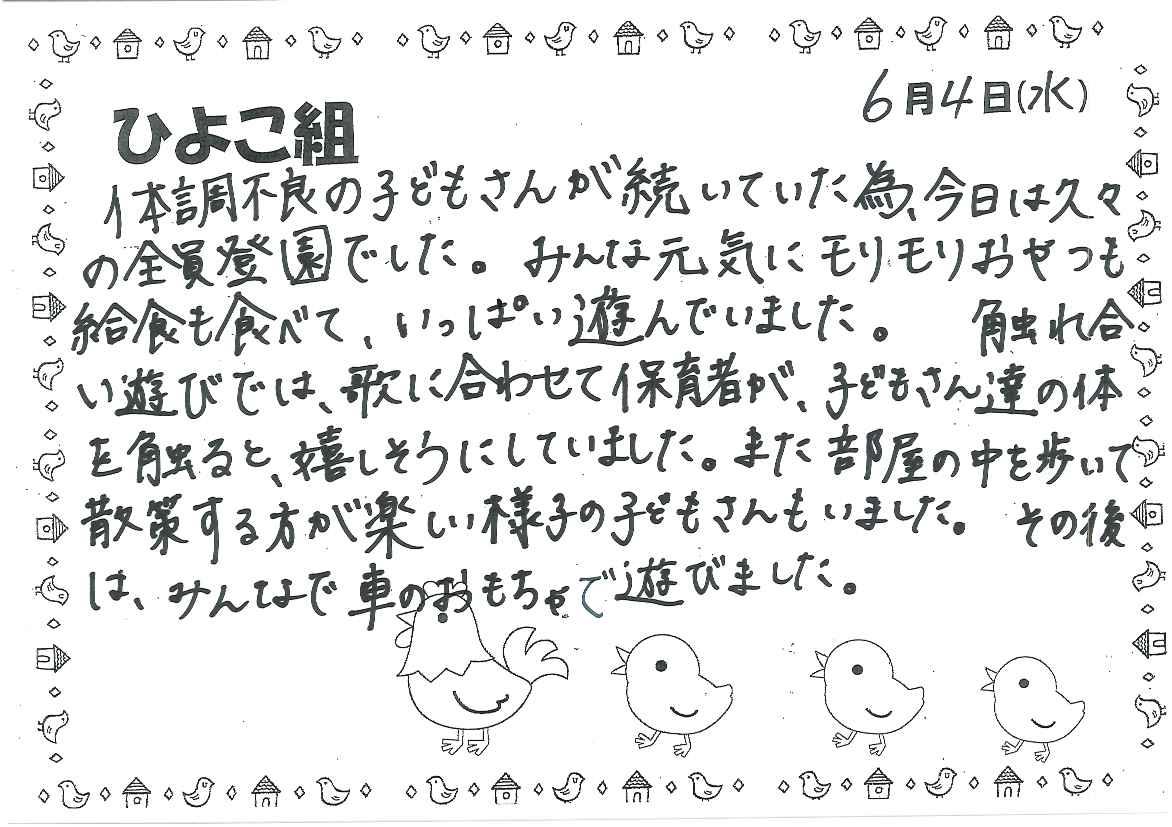 6月4日(水)
ひよこ組
体調不良の子どもさんが続いていた為、今日は久々
の全員登園でした。みんな元気にモリモリおやつも
給食も食べて、いっぱい遊んでいました。 触れ合
い遊びでは、歌に合わせて保育者が、子どもさん達の体
を触ると、嬉しそうにしていました。また部屋の中を歩いて
散策する方が楽しい様子の子どもさんもいました。 その後
は、みんなで車のおもちゃで遊びました。